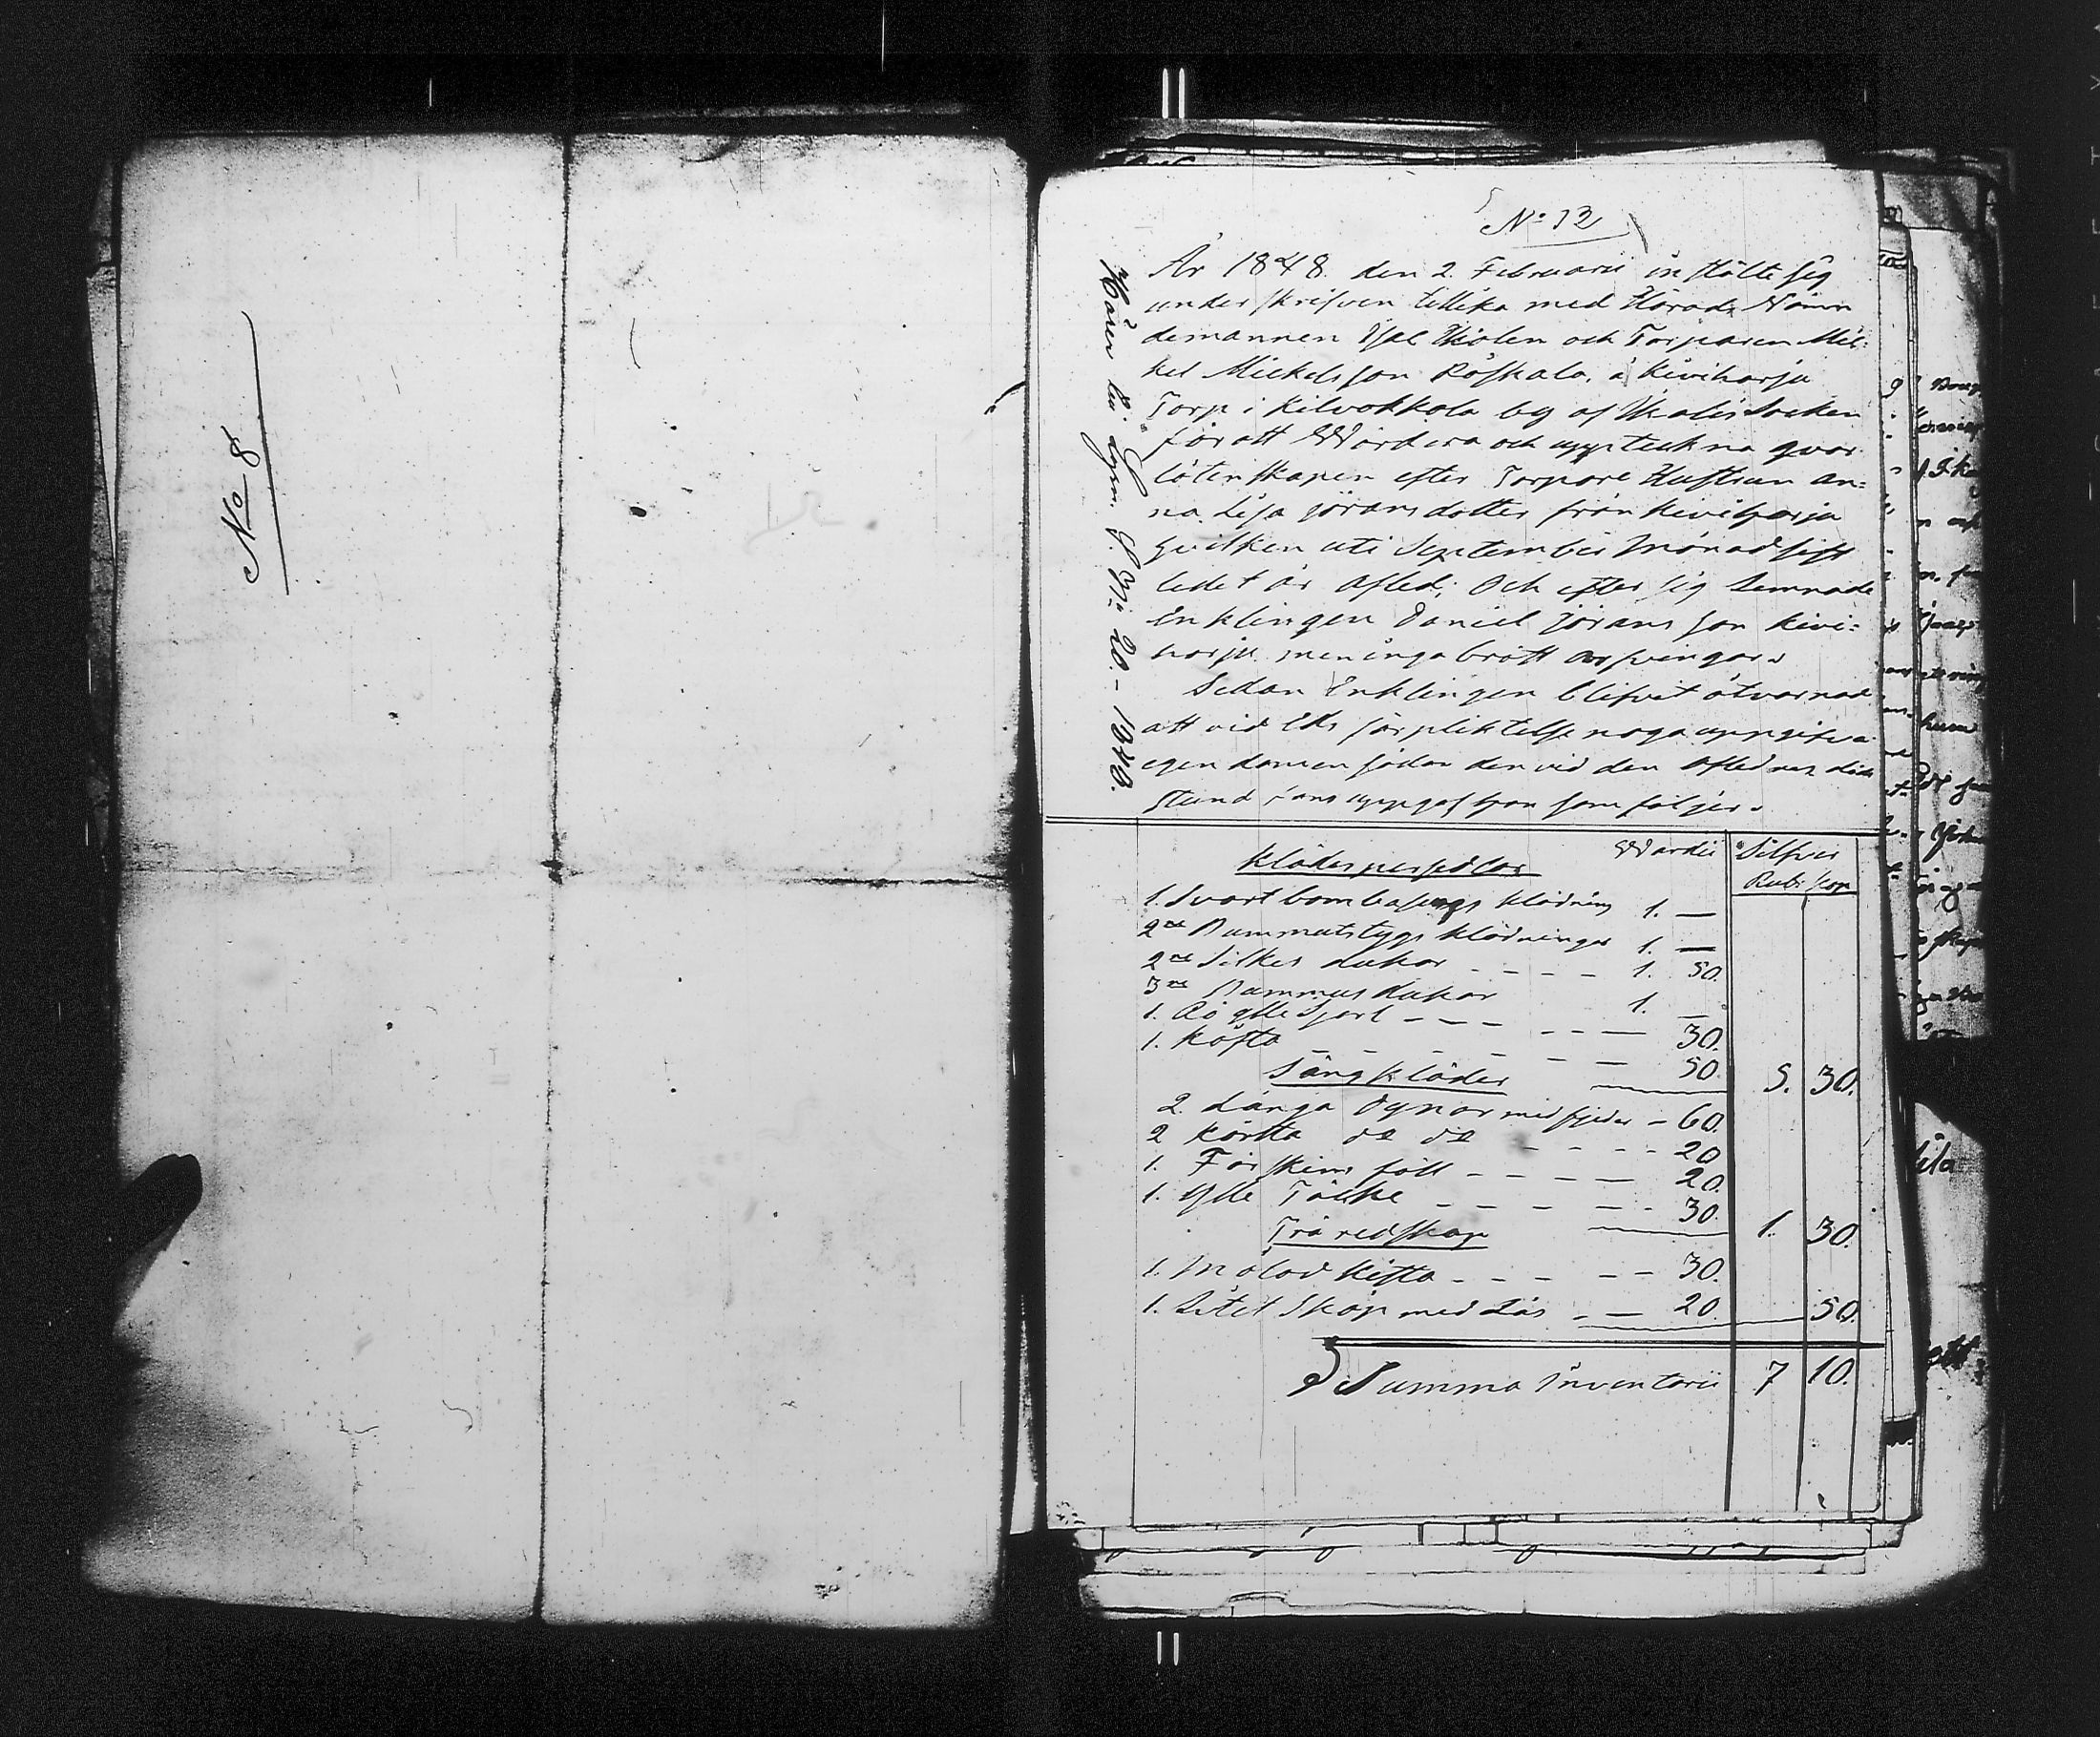 No 8
No 12
År 1848 den 2 Februarii instälte sig
underskrifven tillika med Härads Nämn
demannen och Torparen Mic:
kel Mickelsson Röskala, å Kiviharju
Torp i Kilvakkola by af Ikalis Socken
för att Wärdera och uppteckna qvar
låtenskapen efter Torpare Hustrun An:
na Lisa Jöransdotter från Kiviharju
hvilken uti September Månad sist
ledet år afled; Och efter sig Lemnade
Enklingen Daniel Jöransson Kivi:
harju men inga bröst arfvingar.
Sedan Enklingen blifvit åtvarnad
att vid Eds förpliktelse noga uppgifva
egendomen sådan den vid den aflednes döds
stund fans uppgaf han som följer.
Hörer till Lagm. S. No: 20 - 1848.
Klädespersedlar Wärde Silfver
Rub: Kop
1. Svart bombasengs klädning 1. —
2ne Bummulstygs klädningar 1. —
2ne Silkes dukar - - - - 1. 50.
3ne Bummuls dukar 1. —
1. Rö ylle Sjart - - - - - — 30.
1. Köfta - - - - - - — 50. 5. 30.
Sängkläder
2. Långa Dynor med fjeder - 60.
2 Korta do do - - - - 20
1. Fårskins fäll - - - - — 20.
1. Ylle Täcke - - - - — - 30. 1. 30.
Träredskap
1. Målad Kista - - - - — 30.
1. Litet Skåp med Lås - — 20. 50.
Summa Inventarii 7 10.